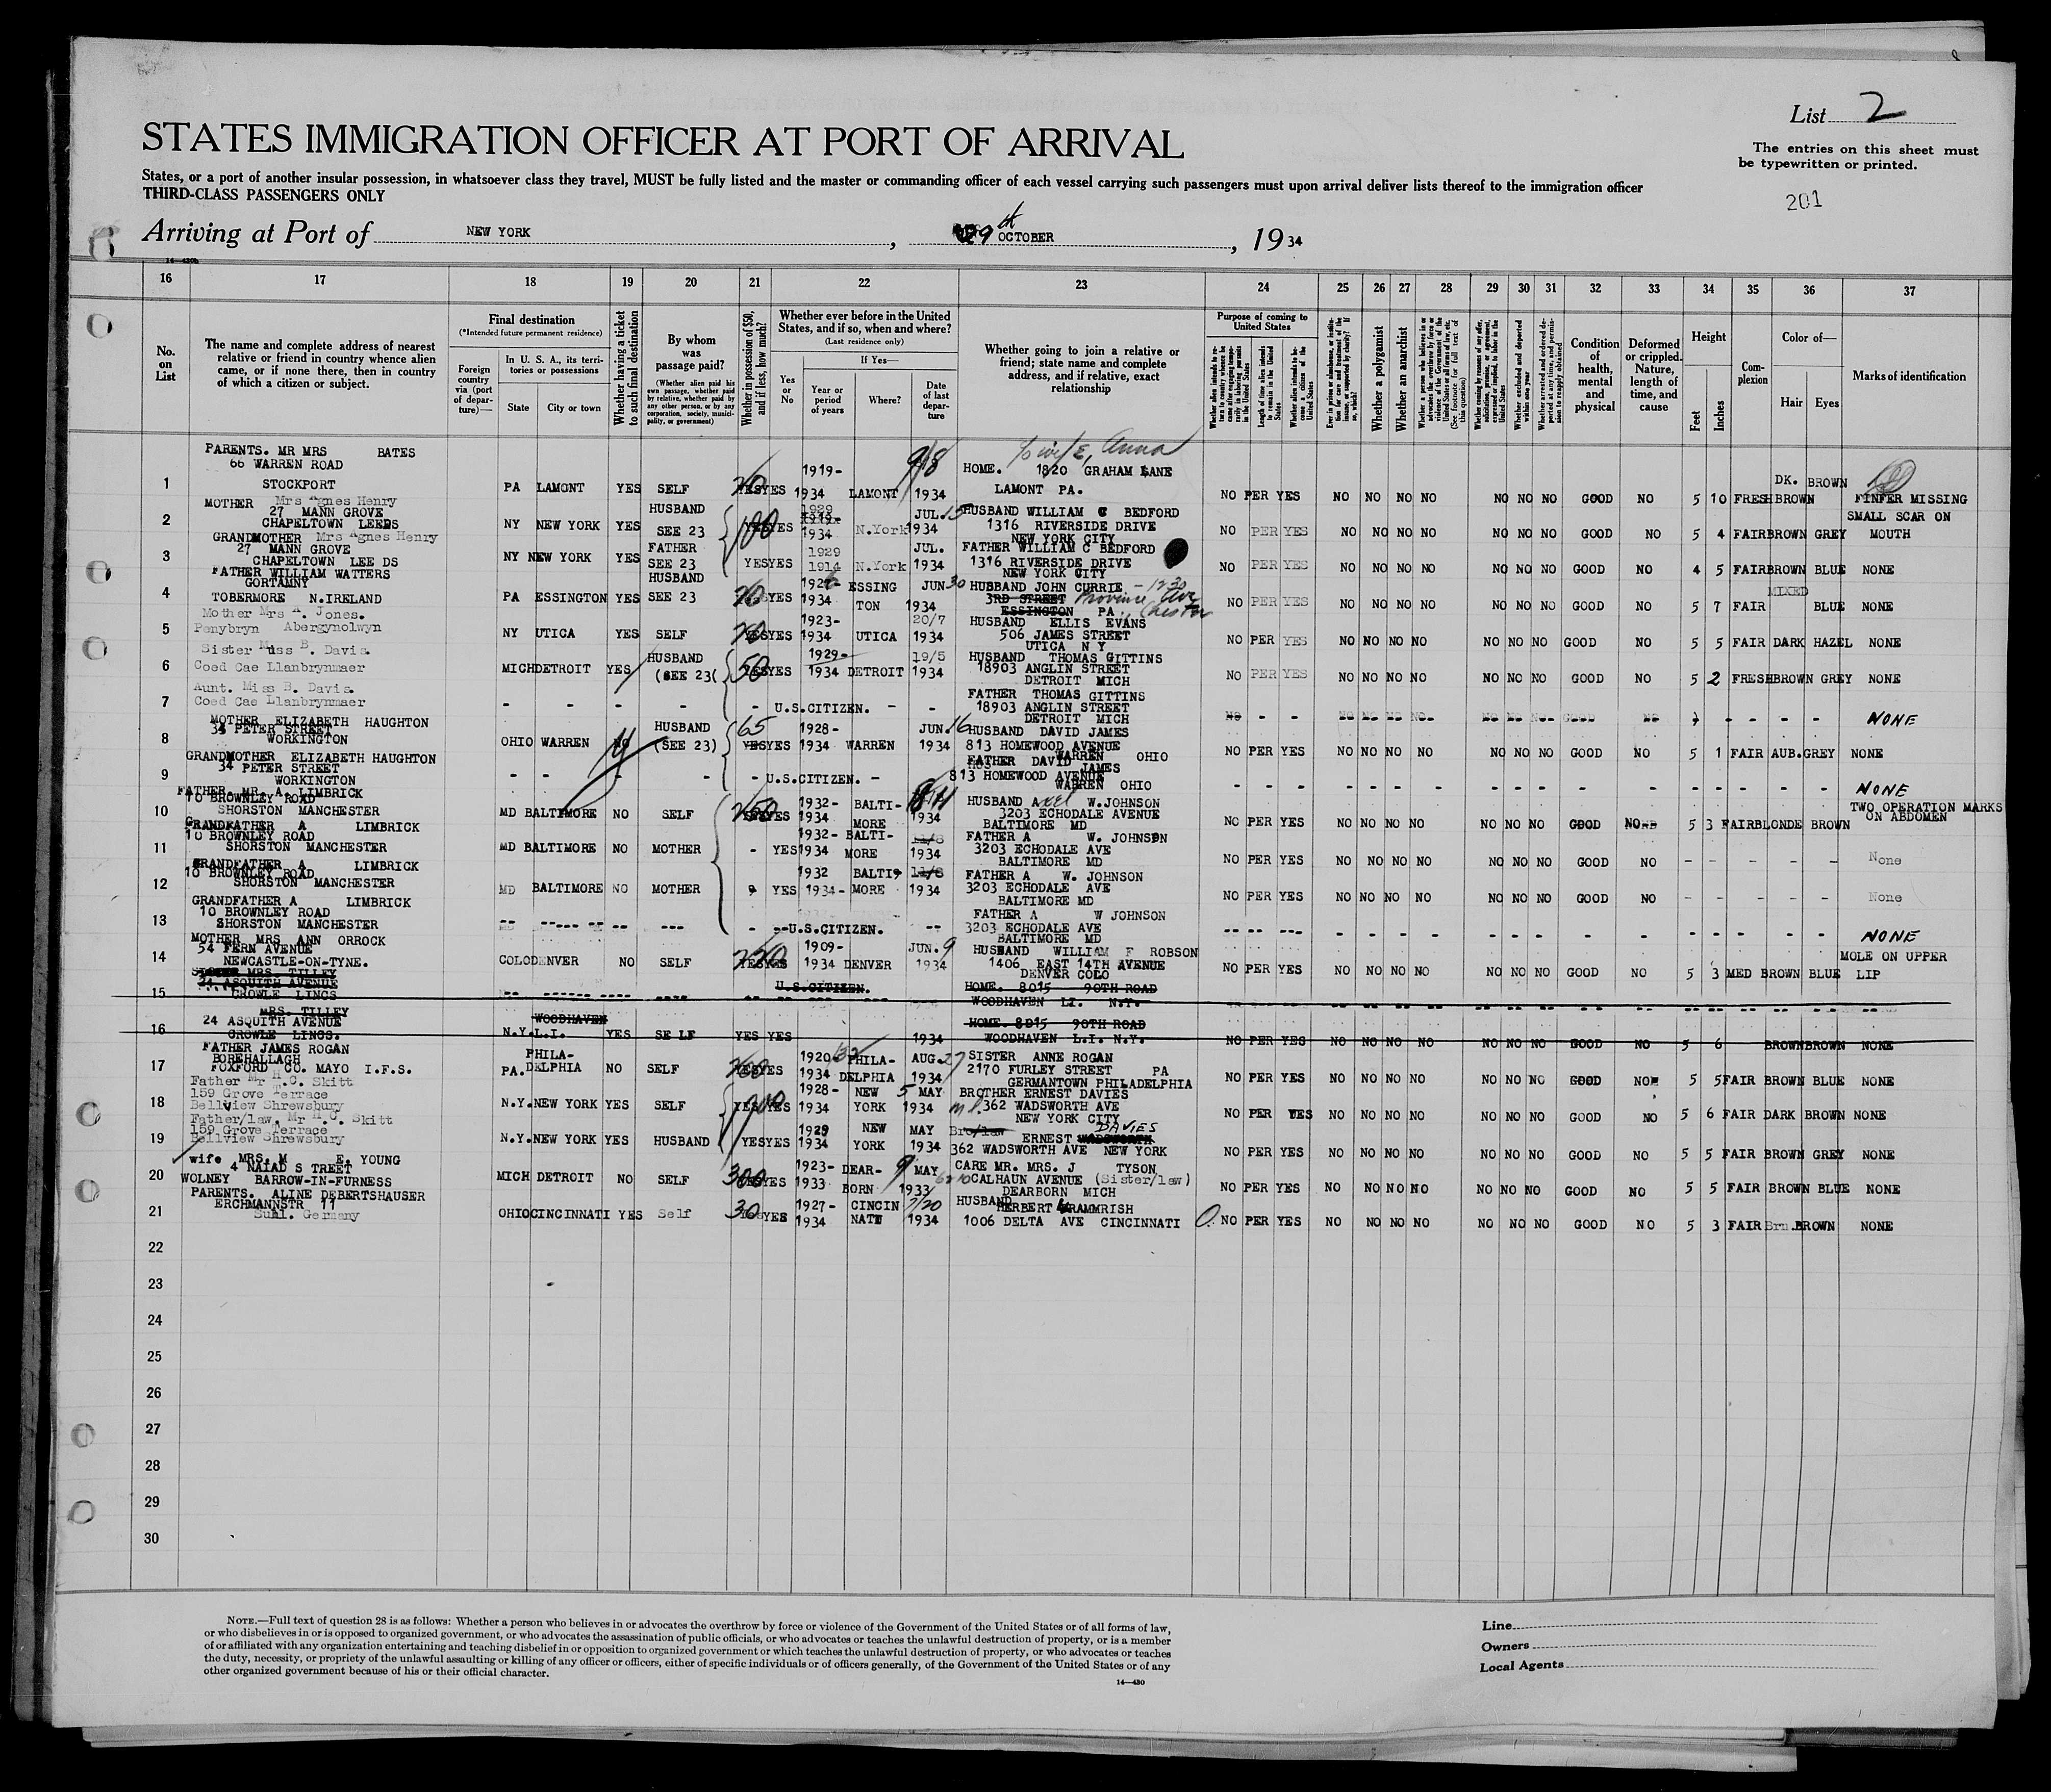 List 2
STATES IMMIGRATION OFFICER AT PORT OF ARRIVAL
The entries on this sheet must
be typewritten or printed.
States, or a port of another insular possession, in whatsoever class they travel, MUST be fully listed and the master or commanding officer of each vessel carrying such passengers must upon arrival deliver lists thereof to the immigration officer
THIRD-CLASS PASSENGERS ONLY
201
Arriving at Port of NEW YORK, 29th OCTOBER, 1934
14-430b
16 17 18 19 20 21 22 23 24 25 26 27 28 29 30 31 32 33 34 35 36 37
No. on List
The name and complete address of nearest relative or friend in country whence alien came, or if none there, then in country of which a citizen or subject.
Final destination
(*Intended future permanent residence)
Foreign country via (port of departure)—
In U. S. A., its territories or possessions
State
City or town
Whether having a ticket to such final destination
By whom was passage paid?
(Whether alien paid his own passage, whether paid by relative, whether paid by any other person, or by any corporation, society, municipality, or government)
Whether in possession of $50, and if less, how much?
Whether ever before in the United States, and if so, when and where?
(Last residence only)
Yes or No
If Yes—
Year or period of years
Where?
Date of last departure
Whether going to join a relative or friend; state name and complete address, and if relative, exact relationship
Purpose of coming to United States
Whether alien intends to return to country whence he came after engaging temporarily in laboring pursuits in the United States
Length of time alien intends to remain in the United States
Whether alien intends to become a citizen of the United States
Whether a polygamist
Whether an anarchist
Condition of health, mental and physical
Deformed or crippled. Nature, length of time, and cause
Height
Feet
Inches
Complexion
Color of—
Hair
Eyes
Marks of identification
1 PARENTS. MR MRS BATES
66 WARREN ROAD
STOCKPORT
PA LAMONT YES SELF YES 1919-1934 LAMONT 1934
HOME. 1820 GRAHAM LANE
LAMONT PA.
NO PER YES NO NO NO NO NO NO NO GOOD NO 5 10 FRESH DK. BROWN BROWN FINFER MISSING
2 MOTHER Mrs Agnes Henry
27 MANN GROVE
CHAPELTOWN LEEDS
NY NEW YORK YES HUSBAND SEE 23 100 YES 1929 1934 N.York JUL. 15 1934
HUSBAND WILLIAM C BEDFORD
1316 RIVERSIDE DRIVE
NEW YORK CITY
NO PER YES NO NO NO NO NO NO NO GOOD NO 5 4 FAIR BROWN GREY SMALL SCAR ON MOUTH
3 GRANDMOTHER Mrs Agnes Henry
27 MANN GROVE
CHAPELTOWN LEE DS
NY NEW YORK YES FATHER SEE 23 YES YES 1929 1914 N.York JUL. 1934
FATHER WILLIAM C BEDFORD
1316 RIVERSIDE DRIVE
NEW YORK CITY
NO PER YES NO NO NO NO NO NO NO GOOD NO 4 5 FAIR BROWN BLUE NONE
4 FATHER WILLIAM WATTERS
GORTAMNY
TOBERMORE N.IRELAND
PA ESSINGTON YES HUSBAND SEE 23 YES 1934 ESSINGTON JUN 30 1934
HUSBAND JOHN CURRIE - 1230
3RD STREET Province Ave
ESSINGTON PA. Chester
NO PER YES NO NO NO NO NO NO NO GOOD NO 5 7 FAIR MIXED BLUE NONE
5 Mother Mrs A. Jones.
Penybryn Abergynolwyn
NY UTICA YES SELF YES 1923-1934 UTICA 20/7 1934
HUSBAND ELLIS EVANS
506 JAMES STREET
UTICA N Y
NO PER YES NO NO NO NO NO NO NO GOOD NO 5 5 FAIR DARK HAZEL NONE
6 Sister Miss B. Davis.
Coed Cae Llanbrynmaer
MICH DETROIT YES HUSBAND (SEE 23( 50 YES 1929-1934 DETROIT 19/5 1934
HUSBAND THOMAS GITTINS
18903 ANGLIN STREET
DETROIT MICH
NO PER YES NO NO NO NO NO NO NO GOOD NO 5 2 FRESH BROWN GREY NONE
7 Aunt. Miss B. Davis.
Coed Cae Llanbrynmaer
- - - - - U.S.CITIZEN. - -
FATHER THOMAS GITTINS
18903 ANGLIN STREET
DETROIT MICH
NONE
8 MOTHER ELIZABETH HAUGHTON
34 PETER STREET
WORKINGTON
OHIO WARREN NO HUSBAND (SEE 23) 65 YES 1928-1934 WARREN JUN. 16 1934
HUSBAND DAVID JAMES
813 HOMEWOOD AVENUE
WARREN OHIO
NO PER YES NO NO NO NO NO NO NO GOOD NO 5 1 FAIR AUB. GREY NONE
9 GRANDMOTHER ELIZABETH HAUGHTON
34 PETER STREET
WORKINGTON
- - - - - U.S.CITIZEN. -
FATHER DAVID JAMES
813 HOMEWOOD AVENUE
WARREN OHIO
NONE
10 FATHER. MR. A. LIMBRICK
10 BROWNLEY ROAD
SHORSTON MANCHESTER
MD BALTIMORE NO SELF YES 1932-1934 BALTIMORE 1934
HUSBAND Axel W.JOHNSON
3203 ECHODALE AVENUE
BALTIMORE MD
NO PER YES NO NO NO NO NO NO NO GOOD NO 5 3 FAIR BLONDE BROWN TWO OPERATION MARKS ON ABDOMEN
11 GRANDFATHER A LIMBRICK
10 BROWNLEY ROAD
SHORSTON MANCHESTER
MD BALTIMORE NO MOTHER - YES 1932-1934 BALTIMORE 11/8 1934
FATHER A W. JOHNSON
3203 ECHODALE AVE
BALTIMORE MD
NO PER YES NO NO NO NO NO NO NO GOOD NO - - - - - None
12 GRANDFATHER A LIMBRICK
10 BROWNLEY ROAD
SHORSTON MANCHESTER
MD BALTIMORE NO MOTHER YES 1932 1934- BALTIMORE 11/8 1934
FATHER A W. JOHNSON
3203 ECHODALE AVE
BALTIMORE MD
NO PER YES NO NO NO NO NO NO NO GOOD NO - - - - - None
13 GRANDFATHER A LIMBRICK
10 BROWNLEY ROAD
SHORSTON MANCHESTER
U.S.CITIZEN.
FATHER A W JOHNSON
3203 ECHODALE AVE
BALTIMORE MD
NONE
14 MOTHER MRS ANN ORROCK
54 FERN AVENUE
NEWCASTLE-ON-TYNE.
COLO DENVER NO SELF YES 1909-1934 DENVER JUN. 9 1934
HUSBAND WILLIAM F ROBSON
1406 EAST 14TH AVENUE
DENVER COLO
NO PER YES NO NO NO NO NO NO NO GOOD NO 5 3 MED BROWN BLUE MOLE ON UPPER LIP
15 SISTER MRS. TILLEY
24 ASQUITH AVENUE
CROWLE LINCS
U.S.CITIZEN.
HOME. 8015 90TH ROAD
WOODHAVEN LI. N.Y.
16 MRS. TILLEY
24 ASQUITH AVENUE
CROWLE LINCS.
N.Y. WOODHAVEN L.I. YES SELF YES YES 1934
HOME. 8015 90TH ROAD
WOODHAVEN L.I. N.Y.
NO PER YES NO NO NO NO NO NO NO GOOD NO 5 6 BROWN BROWN NONE
17 FATHER JAMES ROGAN
BOREHALLAGH
FOXFORD CO. MAYO I.F.S.
PA. PHILADELPHIA NO SELF YES 1920 1934 PHILADELPHIA AUG. 27 1934
SISTER ANNE ROGAN
2170 FURLEY STREET PA
GERMANTOWN PHILADELPHIA
NO PER YES NO NO NO NO NO NO NO GOOD NO 5 5 FAIR BROWN BLUE NONE
18 Father Mr H.C. Skitt
159 Grove Terrace
Bellview Shrewsbury
N.Y. NEW YORK YES SELF YES 1928-1934 NEW YORK 5 MAY 1934
BROTHER ERNEST DAVIES
362 WADSWORTH AVE
NEW YORK CITY
NO PER YES NO NO NO NO NO NO NO GOOD NO 5 6 FAIR DARK BROWN NONE
19 Father/law. Mr H.C. Skitt
159 Grove Terrace
Bellview Shrewsbury
N.Y. NEW YORK YES HUSBAND YES YES 1929 1934 NEW YORK MAY 1934
Bro/law ERNEST WADSWORTH DAVIES
362 WADSWORTH AVE NEW YORK
NO PER YES NO NO NO NO NO NO NO GOOD NO 5 5 FAIR BROWN GREY NONE
20 wife MRS. M E. YOUNG
4 NAIAD STREET
WOLNEY BARROW-IN-FURNESS
MICH DETROIT NO SELF 300 YES 1923-1933 DEARBORN 9 MAY 1933
CARE MR. MRS. J TYSON
CALHAUN AVENUE (Sister/law)
DEARBORN MICH
NO PER YES NO NO NO NO NO NO NO GOOD NO 5 5 FAIR BROWN BLUE NONE
21 PARENTS. ALINE DEBERTSHAUSER
ERCHMANNSTR 11
Suhl. Germany
OHIO CINCINNATI YES Self 30 YES 1927-1934 CINCINNATI 7/20 1934
HUSBAND HERBERT KRAMMRISH
1006 DELTA AVE CINCINNATI O.
NO PER YES NO NO NO NO NO NO NO GOOD NO 5 3 FAIR Brn. BROWN NONE
22
23
24
25
26
27
28
29
30
NOTE.—Full text of question 28 is as follows: Whether a person who believes in or advocates the overthrow by force or violence of the Government of the United States or of all forms of law,
or who disbelieves in or is opposed to organized government, or who advocates the assassination of public officials, or who advocates or teaches the unlawful destruction of property, or is a member
of or affiliated with any organization entertaining and teaching disbelief in or opposition to organized government or which teaches the unlawful destruction of property, or who advocates or teaches
the duty, necessity, or propriety of the unlawful assaulting or killing of any officer or officers, either of specific individuals or of officers generally, of the Government of the United States or of any
other organized government because of his or their official character.
14-430
Line
Owners
Local Agents